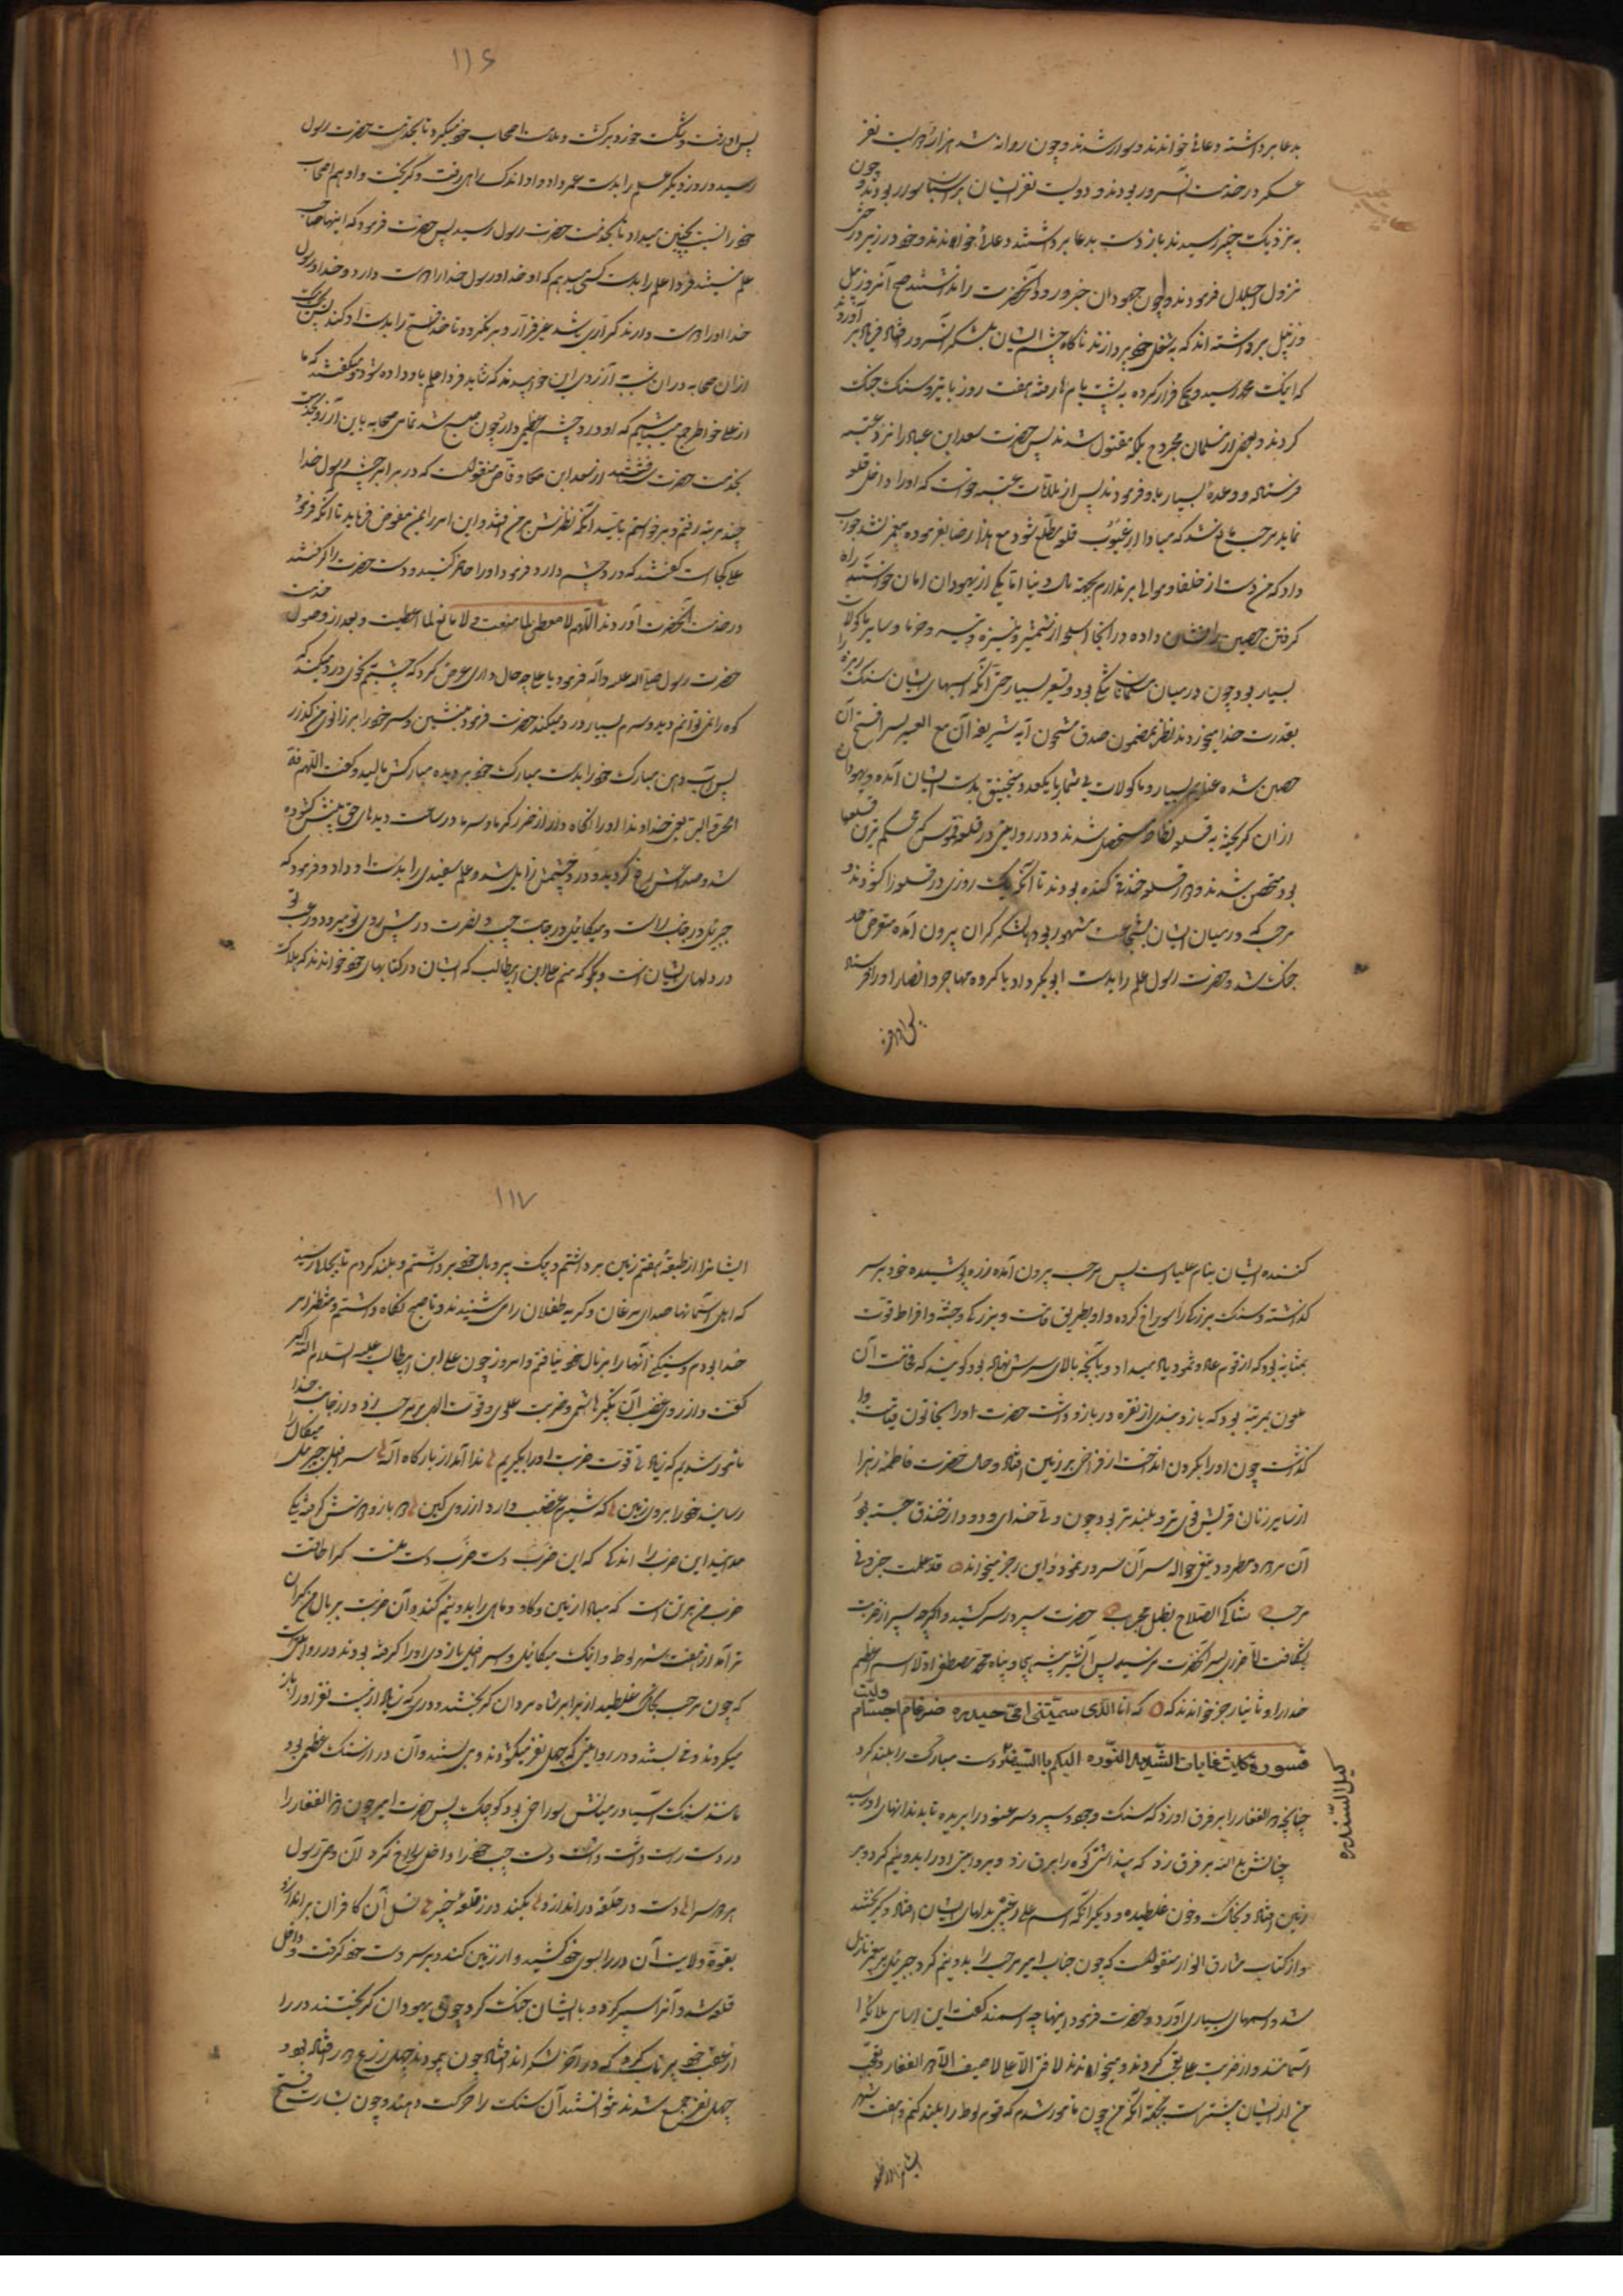 بدعا برداشته دعائی خواندند و سوار شدند و چون روانه شد هزار و دویست نفر
عسکر در خدمت آنسرور بودند و دویست نفر ایشان بر اسبها سوار بودند و چون
به نزدیک خیبر رسیدند باز دست بدعا برداشتند و دعائی خواندند و خود در زیر درختی
نزول اجلال فرمودند و چون جهودان خبر ورود آنحضرت را ندانستند صبح آنروز بیل
و زنبیل برداشته اند که بشغل خود پردازند ناگاه چشم ایشان بلشکر آنسرور افتاد فریاد بر آوردند
که اینک محمد رسید و همگی فرار کرده به پشت بام ها رفته هفت روز با تیر و سنگ جنگ
کردند و بعضی از مسلمانان مجروح بلکه مقتول شدند پس حضرت سعد ابن عباده را نزد عتبه
فرستاد و وعدهٔ بسیار باو فرمودند پس از ملاقات عتبه خواست که او را داخل قلعه
نماید مرحب مانع شد که مبادا از عیوب قلعه مطلع شود مع هذا رضا بفرموده پیغمبر نشد جواب
داد که من دست از خلفا و موالی بر ندارم بجهة مال دنیا اما یکی از یهودان امان خواسته راه
گرفتن حصین را نشان داده در آنجا اسلحه از شمشیر و نیزه و تیر و خرما و سایر ماکولات
بسیار بود چون در میان مسلمانان تنگی بود و تعسیر بسیار حتی آنکه اسبهای ایشان سنگ ریزه را
بقدرت خدا میخوردند نظر بمضمون صدق مشحون آیه شریفه ان مع العسر یسرا فتح آن
حصین شده غنایم بسیار و ماکولات بی شمار با یکعدد منجنیق بدست ایشان آمد و یهودان
از آن گریخته به قلعه نطاط متحصن شدند و در روایتی در قلعه قموس که محکم ترین قلعها
بود متحصن شدند و در قلعه خندق کنده بودند تا آنکه یک روزی در قلعه را گشودند و
مرحب که در میان ایشان بشجاعت مشهور بود با لشکر گران بیرون آمده متعرض
جنگ شد و حضرت رسول علم را بدست ابی بکر داد با گروه مهاجر و انصار او را فرستاد
پس او رفت
۱۱۶
پس او رفت و شکست خورد و برگشت و ملامت اصحاب خود میکرد تا بخدمت حضرت رسول
رسید و روز دیگر علم را بدست عمر داد و او اندک راهی رفت و گریخت و او هم اصحاب
خود را نسبت بجبن میداد تا بخدمت حضرت رسول رسید پس حضرت فرمود که اینها صاحب
علم نیستند فردا علم را بدست کسی میدهم که او خدا و رسول خدا را دوست دارد و خدا و رسول
خدا او را دوست دارند کرار باشد غیر فرار و بر نگردد تا خدا فتح را بدست او کند
از آن صحابه در آن شب آرزوی این خوابیدند که شاید فردا علم باو داده شود و میگفتند که ما
از علی خاطر جمع میباشیم که او درد چشم عظیمی دارد چون صبح شد تمامی صحابه باین آرزو بخدمت
بخدمت حضرت رفتند از سعد ابن وقاص منقولست که در برابر چشم رسول خدا
چند مرتبه رفتم و برخواستم باشد آنکه نظرش بر من افتد و این امر را بمن مفوض فرماید تا آنکه فرمود
علی کجاست گفتند که درد چشم دارد فرمود او را حاضر کنید و دست حضرت را گرفتند
در خدمت آنحضرت آوردند اللهم لا معطی لما منعت و لا مانع لما اعطیت و بعد از وصول خدمت
حضرت رسول صلی الله علیه و آله فرمود یا علی چه حال داری عرض کرد که چشمم بنوعی درد میکند که
کوه را نمی توانم دید و سرم بسیار درد میکند حضرت فرمود بنشین و سر خود را بر زانوی من گذار
پس آب دهن مبارک خود را بدست مبارک خود بر دیده مبارکش مالید و گفت اللهم قه
الحر و البرد یعنی خداوندا او را نگاه دار از ضرر گرما و سرما در ساعت دیدهای حق بینش گشوده
شد و صداعش رفع گردید و درد چشمش زایل شد و علم سفیدی را بدست او داد و فرمود که
جبرئیل در جانب راست و میکائیل در جانب چپ و نصرت در پیش روی تو میرود و رعب تو
در دلهای ایشان است و بگو که منم علی ابن ابیطالب که ایشان در کتابهای خود خوانده اند که هلاک
کننده ایشان بنام علیا است پس مرحب بیرون آمده زره پوشیده خود بر سر
گذاشته و سنگ بزرگی را سوراخ کرده و او بطریق قامت و بزرگی و جثه و افراط قوت
بمثابه بود که از قوم عاد و ثمود یاد میداد و بالجمله بالای سرش نهاده بود گویند که قامت آن
ملعون بمرتبهٔ بود که بازوبندی از نقره در بازو داشت حضرت او را بخاتون قیامت وا
گذاشت چون او را بگردن انداخت از فراخی بر زمین افتاد و حال حضرت فاطمه زهرا
از سایر زنان قریش قوی تر و بلندتر بود چون ولی خدای ودود از خندق جسته بود
آن مردود مطرود تیغ حواله سر آن سرور نمود و این رجز میخواند قد علمت خیبر انی
مرحب شاکی السلاح بطل مجرب حضرت سپر در سر کشید و اگرچه سپر از ضربت
شکافت اما ضرری بسر آنحضرت نرسید پس آن شیر بیشه هیجا و پناه محمد مصطفی اولا اسم اعظم
خدا را و ثانیا رجز خواندند که انا الذی سمتنی امی حیدره ضرغام اجام و لیث
قسوره کلیث غابات الشدید القسوره اکیلکم بالسیف دست مبارک را بلند کرد
کیل السندره
چنانچه ذوالفقار را بر فرق او زد که سنگ و خود و سپر و سر عنود را بریده تا بدندانهای او رسید
چنانش ید الله بر فرق زد که پنداشتی کوه را برق زد و بروایتی او را بدو نیم کرد و بر
زمین افتاد و بخاک و خون غلطیده و دیگر آنکه اسم علی رعبی بدلهای ایشان افتاد و گریختند
و از کتاب مشارق الانوار منقولست که چون جناب امیر مرحب را بدو نیم کرد جبرئیل بر پیغمبر نازل
شد و اسمهای بسیاری آورد و حضرت فرمود اینها چه اسمند گفت این اسمای ملائکه
آسمانند و از ضربت علی تعجب کردند و میخواندند لا فتی الا علی لا سیف الا ذو الفقار و تعجب
من از ایشان بیشتر است بجهة آنکه من چون مامور شدم که قوم لوط را بلند کنم و هفت شهر
ایشانرا از طبقه
۱۱۷
ایشانرا از طبقهٔ هفتم زمین برداشتم و بیک پر و بال خود برداشتم و بلند کردم تا بجائی رسید
که اهل آسمانها صدای مرغان و گریه طفلان را می شنیدند و تا صبح نگاه داشتم و منتظر امر
خدا بودم و سنگینی آنها را بر بال خود نیافتم و امروز چون علی ابن ابیطالب علیه السلام الله اکبر
گفت و از روی غضب آن تکبیر هاشمی و ضربت علوی و قوت الهی بر مرحب زد و از جانب خدا
مامور شدیم که زیادتی قوت ضربت او را بگیریم ندا آمد از بارگاه اله سرافیل جبرئیل میکال را
رسانید خود را بروی زمین که شیرم غضب دارد از روی کین دو بازو دستش گرفته یکی
این ضرب را اندکی که این ضرب دست ضرب دست علیست کرا طاقت
ضرب من بر تن است که مبادا زمین و گاو و ماهی را بدو نیم کند و آن ضربت بر بال من گران
تر آمد از هفت شهر لوط و اینک میکائیل و سرافیل بازوی او را گرفته بودند و در روایتی است
که چون مرحب بخاک غلطید از برابر شاه مردان گریختند و دری که زیاد از بیست نفر او را باز
میکردند و می بستند و در روایتی که چهل نفر میگشودند و می بستند و آن در از سنگ عظیمی بود
مانند سنگ آسیا در میانش سوراخی بود کوچک پس حضرت امیر چون ذوالفقار را
در دست راست داشت دست چپ خود را داخل سوراخ کرد آن وصی رسول
هر دو سرا دست در حلقه در اندازد بکند در ز قلعه خیبر نسل آن کافران بر اندازد
بقوة ولایت آن در را بسوی خود کشید و از زمین کند و بر سر دست خود گرفت و داخل
قلعه شد و آنرا سپر کرد و با ایشان جنگ کرد چون یهودان گریختند در را
از عقب خود پرتاب کرد که در آخر لشکر انداخت چون پیمودند چهل زرع دور افتاده بود و
چهل نفر جمع شدند نتوانستند آن سنگ را حرکت دهند و چون بشارت فتح